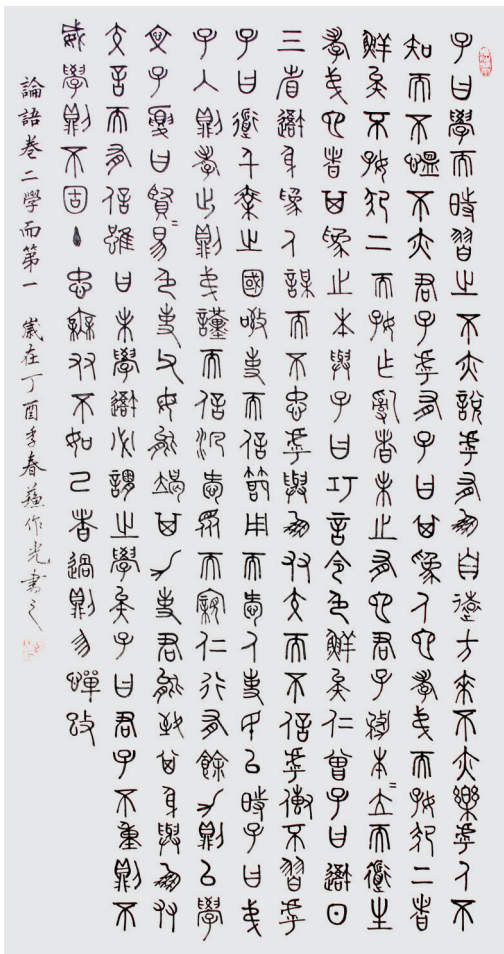 子曰學而時習之不亦說乎有朋自遠方來不亦樂乎人不
知而不慍不亦君子乎有子曰其為人也孝弟而好犯上者
鮮矣不好犯上而好作亂者未之有也君子務本=立而道生
孝弟也者其為之本與子曰巧言令色鮮矣仁曾子曰吾日
三省吾身為人謀而不忠乎與朋友交而不信乎傳不習乎
子曰道千乘之國敬事而信節用而愛人使民以時子曰弟
子入則孝出則弟謹而信汎愛眾而親仁行有餘力則以學
文子夏曰賢=易色事父母能竭其力事君能致其身與朋友
交言而有信雖曰未學吾必謂之學矣子曰君子不重則不
威學則不固主忠無友不如己者過則勿憚改
論語卷二學而第一 歲在丁酉季春蘓作光書之